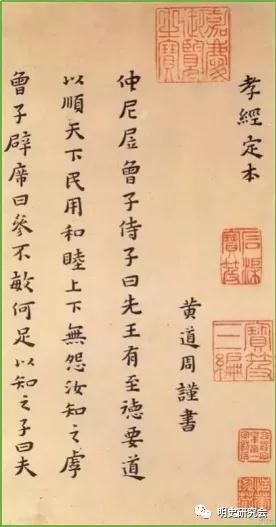 孝經定本
黃道周謹書
仲尼凥曾子侍子曰先王有至德要道
以順天下民用和睦上下無怨汝知之虖
曾子辟席曰參不敏何足以知之子曰夫
嘉慶御覽之寶
寶笈三編
明史研究会